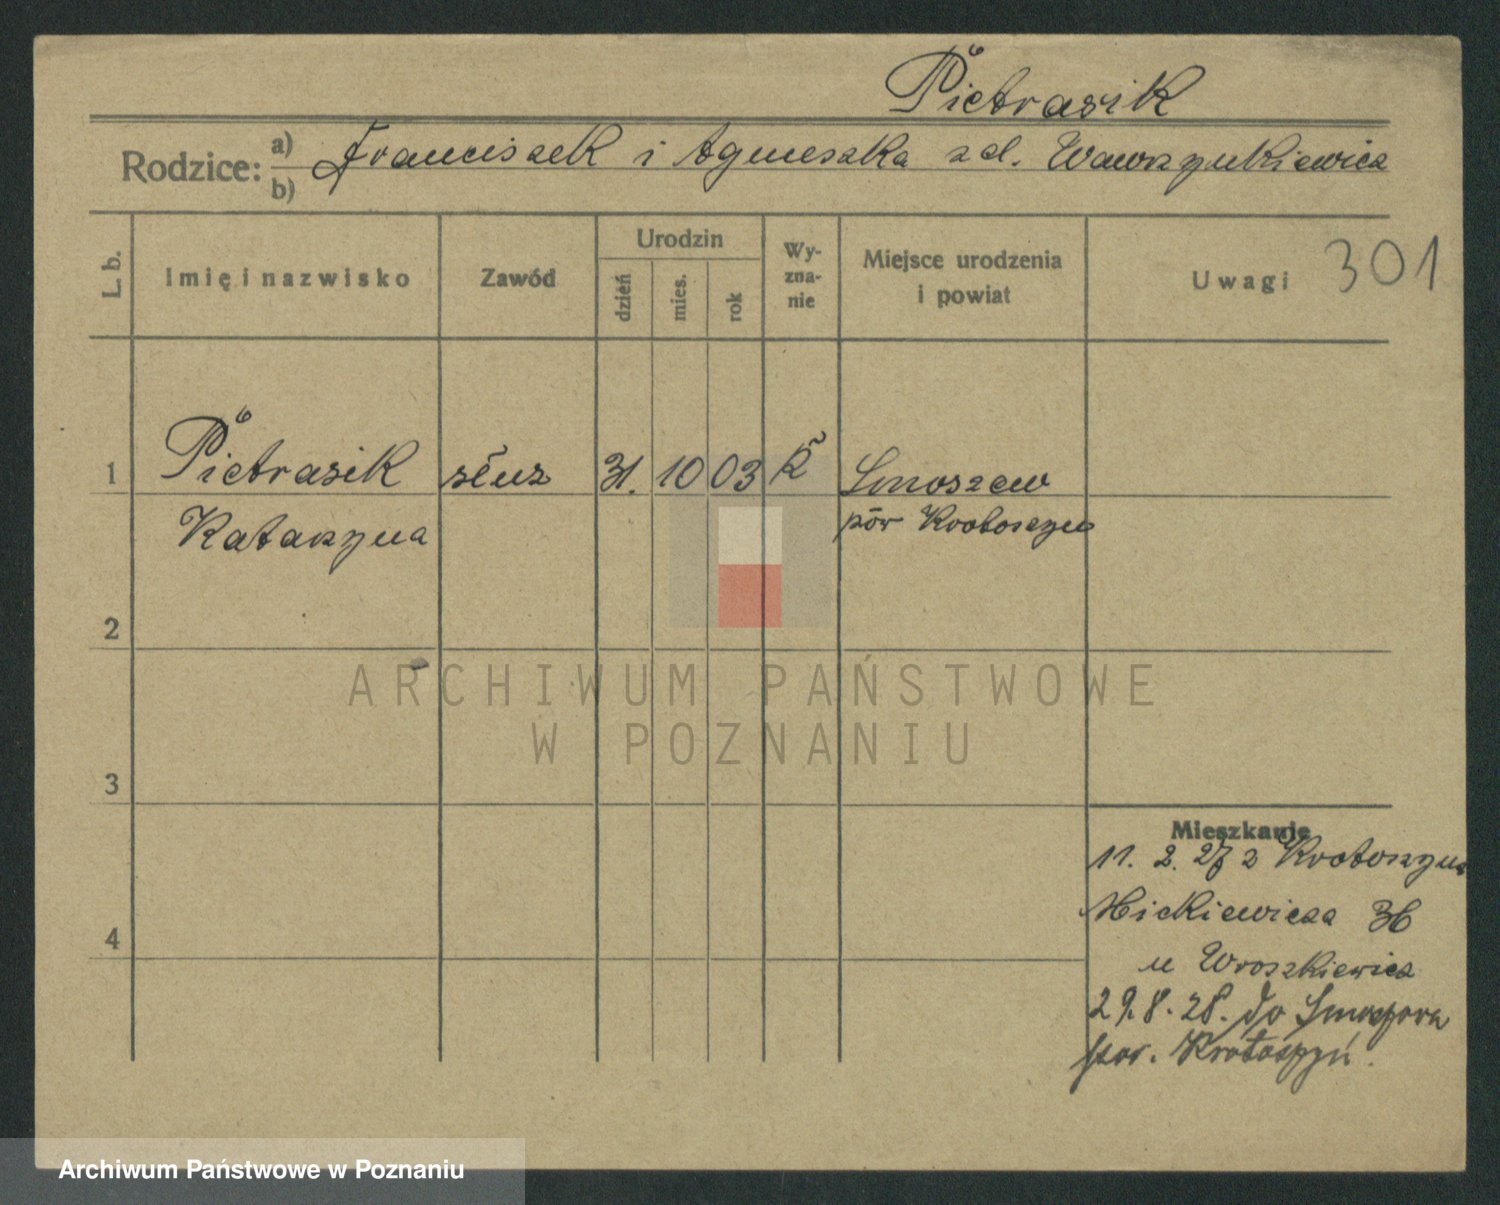 Pietrasik
Rodzice: a) b) Franciszek i Agnieszka zd. Wawrzynkiewicz
L. b.
Imię i nazwisko
Zawód
Urodzin
dzień
mies.
rok
Wy-
zna-
nie
Miejsce urodzenia
i powiat
Uwagi
301
1 Pietrasik służ 31. 10 03 k Smoszew
Katarzyna pow Krotoszyn
2
3
4
Mieszkanie
11. 2. 27 z Krotoszyna
Mickiewicza 36
u Wroszkiewicz
29. 8. 28. do
pow. Krotoszyn.
ARCHIWUM PAŃSTWOWE
W POZNANIU
Archiwum Państwowe w Poznaniu